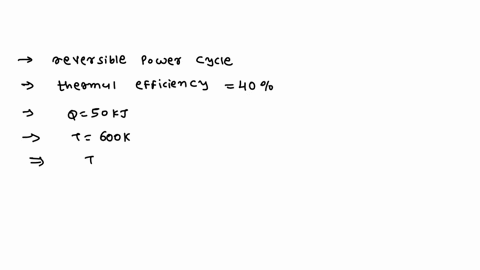 → reversible power cycle
→ thermal efficiency = 40%
→ Q = 50 KJ
→ T = 600K
⇒ T